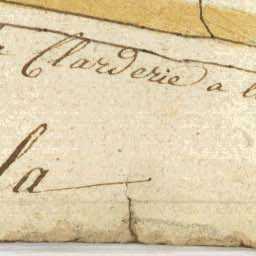 Clarderie a
la